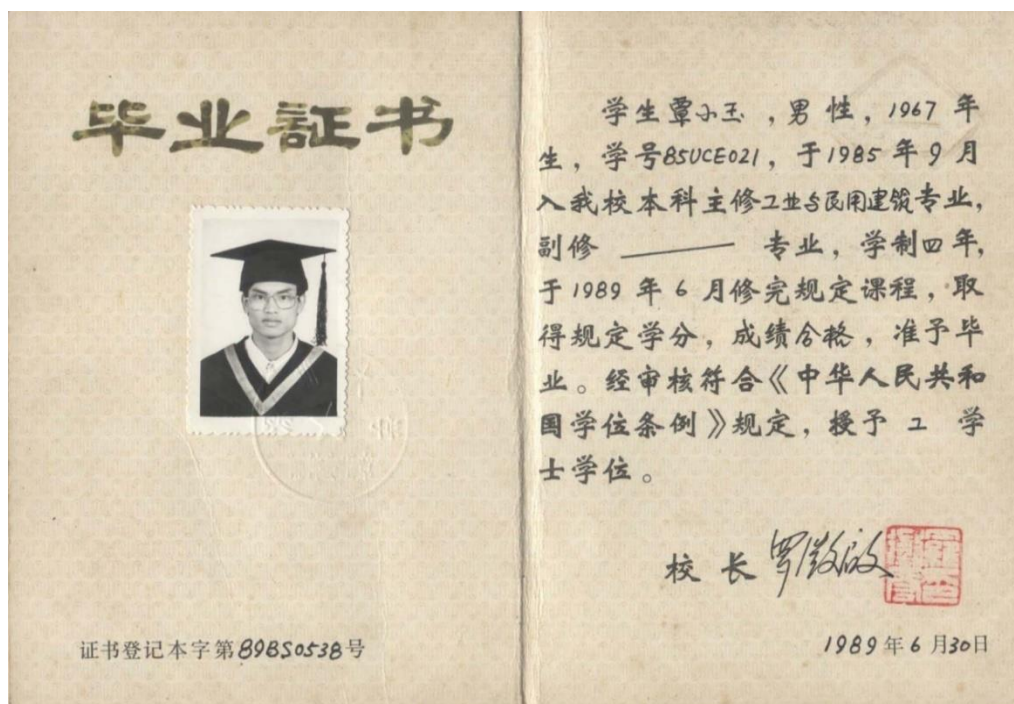 毕业証书
证书登记本字第89BS0538号
学生覃小玉，男性，1967年
生，学号85UCE021，于1985年9月
入我校本科主修工业与民用建筑专业，
副修 专业，学制四年，
于1989年6月修完规定课程，取
得规定学分，成绩合格，准予毕
业。经审核符合《中华人民共和
国学位条例》规定，授予工学
士学位。
校长罗徵啟
1989年6月30日